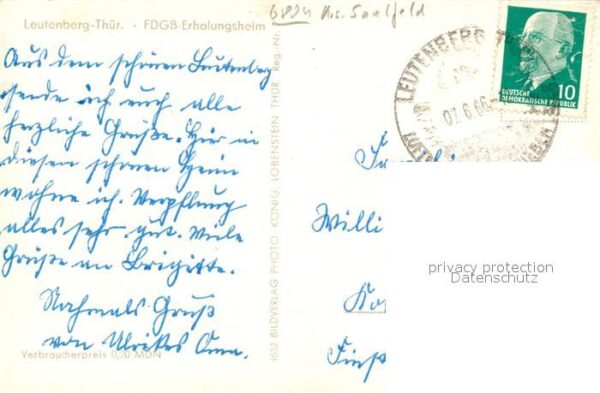 Leutenberg-Thür. - FDGB-Erholungsheim
6824 Krs. Saalfeld
Aus dem schönen Leutenberg
sende ich euch alle
herzliche Grüße. Hier in
diesem schönen Heim
wohne ich. Verpflegung
alles sehr gut. Viele
Grüße an Brigitte.
Nochmals Gruß
von Ulrikes Oma.
Verbraucherpreis 0,20 MDN
4652 BILDVERLAG PHOTO KÖNIG, LOBENSTEIN THÜR. Reg.-Nr.
LEUTENBERG
07.6.66
DEUTSCHE
DEMOKRATISCHE REPUBLIK
10
Willi
privacy protection
Datenschutz